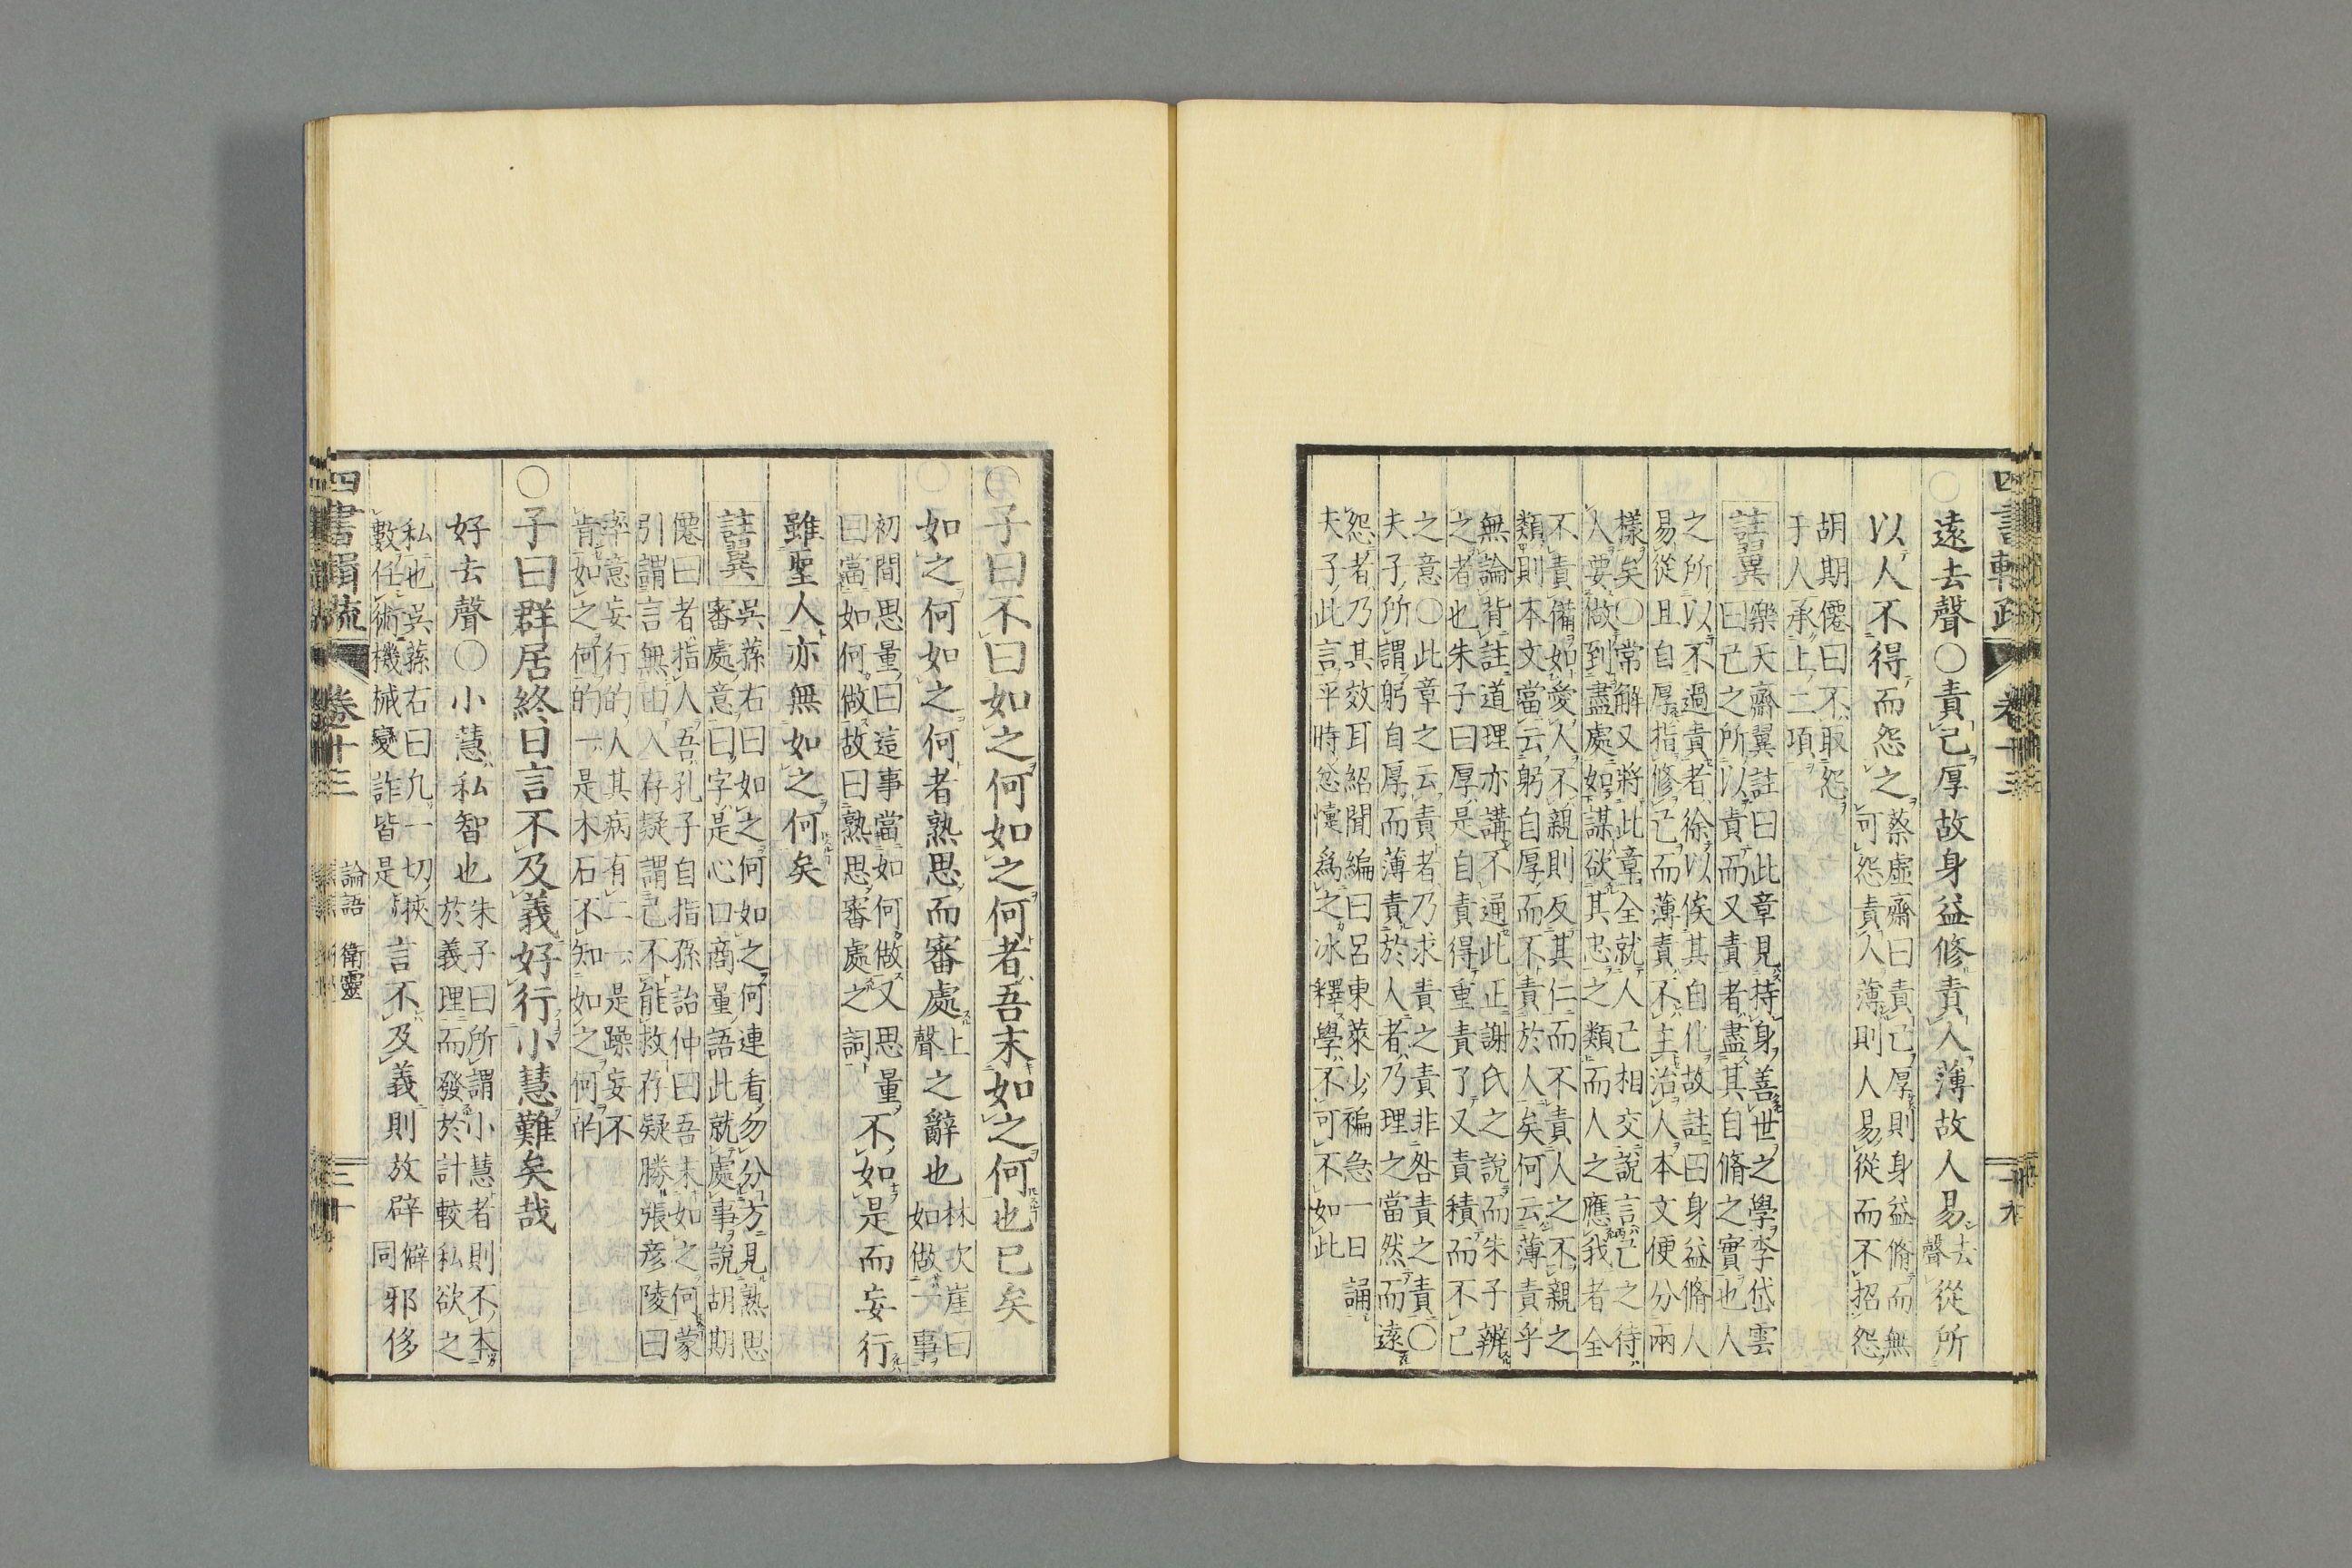 四書輯疏 卷十三
遠去聲〇責己厚故身益修責人薄故人易去聲從所
以人不得而怨之蔡虛齋曰責己厚則身益脩而無
可怨責人薄則人易從而不招怨
胡期僊曰不取怨
于人承上二項
註翼樂天齋翼註曰此章見持身善世之學李岱雲
曰己之所以責而又責者盡其自脩之實也人
之所以不過責者徐以俟其自化故註曰身益脩人
易從且自厚指修己而薄責不主治人本文便分兩
樣矣〇常解又將此章全就人己相交說言己之待
人要做到盡處如謀欲其忠之類而人之應我者全
不責備如愛人不親則反其仁而不責人之不親之
類則本文當云躬自厚而不責於人矣何云薄責乎
無論背註道理亦講不通此正謝氏之說而朱子辨
之者也朱子曰厚是自責得重責了又責積而不已
之意〇此章之云責者乃求責之責非咎責之責〇
夫子所謂躬自厚而薄責於人者乃理之當然而遠
怨者乃其效耳紹聞編曰呂東萊少褊急一日誦
夫子此言平時忿懥爲之冰釋學不可不如此
〇子曰不曰如之何如之何者吾末如之何也已矣
如之何如之何者熟思而審處上聲之辭也林次崖曰如做一事
初間思量曰這事當如何做又思量
曰當如何做故曰熟思審處之詞
不如是而妄行
雖聖人亦無如之何矣
註翼吳蓀右曰如之何如之何連看勿分方見熟思
審處意曰字是心口商量語此就處事說胡期
僊曰者指人吾孔子自指孫詒仲曰吾末如之何蒙
引謂言無由入存疑謂己不能救存疑勝張彦陵曰
率意妄行的人其病有二一是躁妄不
肯如之何的一是木石不知如之何的
〇子曰群居終日言不及義好行小慧難矣哉
好去聲〇小慧私智也朱子曰所謂小慧者則不本
於義理而發於計較私欲之
私也吳蓀右曰凡一切挾
數任術機械變詐皆是
言不及義則放辟僻同邪侈
四書輯疏 卷十三 論語 衛靈 三十